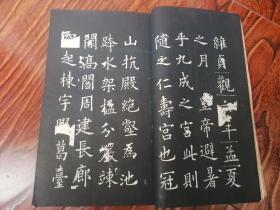 維貞觀年孟夏
之月帝避暑
乎九成之宮此則
隨之仁壽宮也冠
山抗殿絕壑為池
跨水架楹分巖竦
闕高閣周建長廊
四起棟宇葛臺